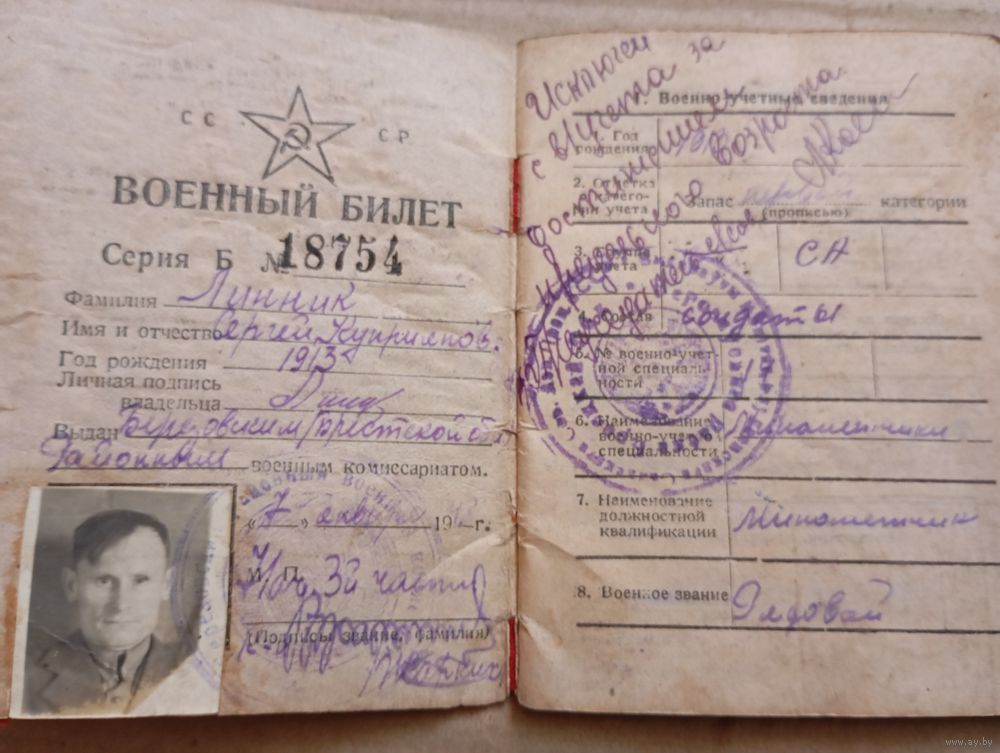 СС СР
ВОЕННЫЙ БИЛЕТ
Серия Б № 18754
Фамилия Линник
Имя и отчество Сергей Куприянов.
Год рождения 1913
Личная подпись
владельца
Выдан Березовским Брестской обл
Районным военным комиссариатом.
« 7 » января 19 г.
М. П.
Нач. 3й части
(Подписы звание, фамилия)
Исключен
с в/учета за
достижением
предельного возраста
1. Военно-учетные сведения
1. Год
рождения
2. Отметка
о катего-
рии учета
Запас категории
(прописью)
3. Группа
учета
СА
4. Состав солдаты
5. № военно-учет-
ной специаль-
ности
6. Наименование
военно-учетной
специальности
Минометчики
7. Наименование
должностной
квалификации
Минометчик
8. Военное звание Рядовой
www.ay.by